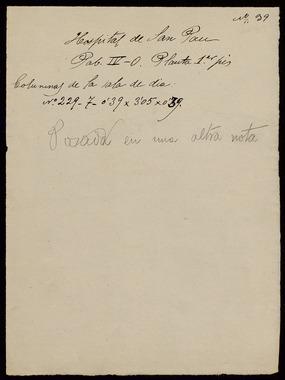 Nº 39
Hospital de San Pau
Pab. IV-O. Planta 1er pis
Columnas de la sala de dia
Nº 229-7-0'39 x 3'05 x 0'39
Posada en una altra nota